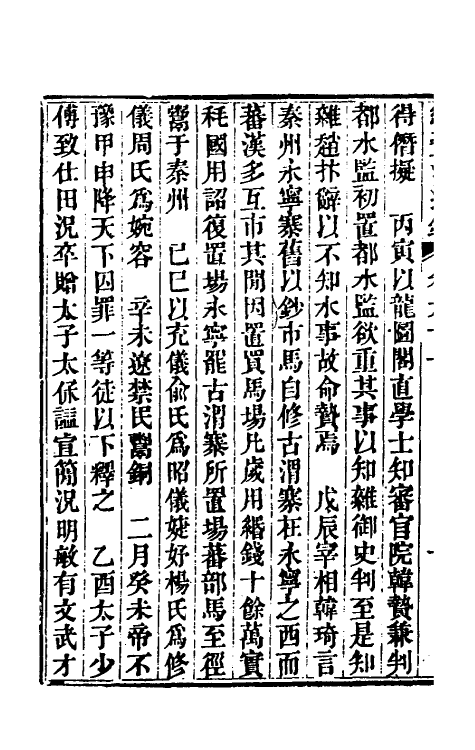 得僭擬　丙寅以龍圖閣直學士知審官院韓贄兼判
都水監初置都水監欲重其事以知雜御史判至是知
雜趙抃辭以不知水事故命贄焉　戊辰宰相韓琦言
秦州永寧寨舊以鈔市馬自修古渭寨在永寧之西而
蕃漢多互市其閒因置買馬場凡歲用緡錢十餘萬實
秏國用詔復置場永寧罷古渭寨所置場蕃部馬至徑
鬻于秦州　已巳以充儀俞氏爲昭儀婕妤楊氏爲修
儀周氏爲婉容　辛未遼禁民鬻銅　二月癸未帝不
豫甲申降天下囚罪一等徒以下釋之　乙酉太子少
傅致仕田況卒贈太子太保諡宣簡況明敏有文武才